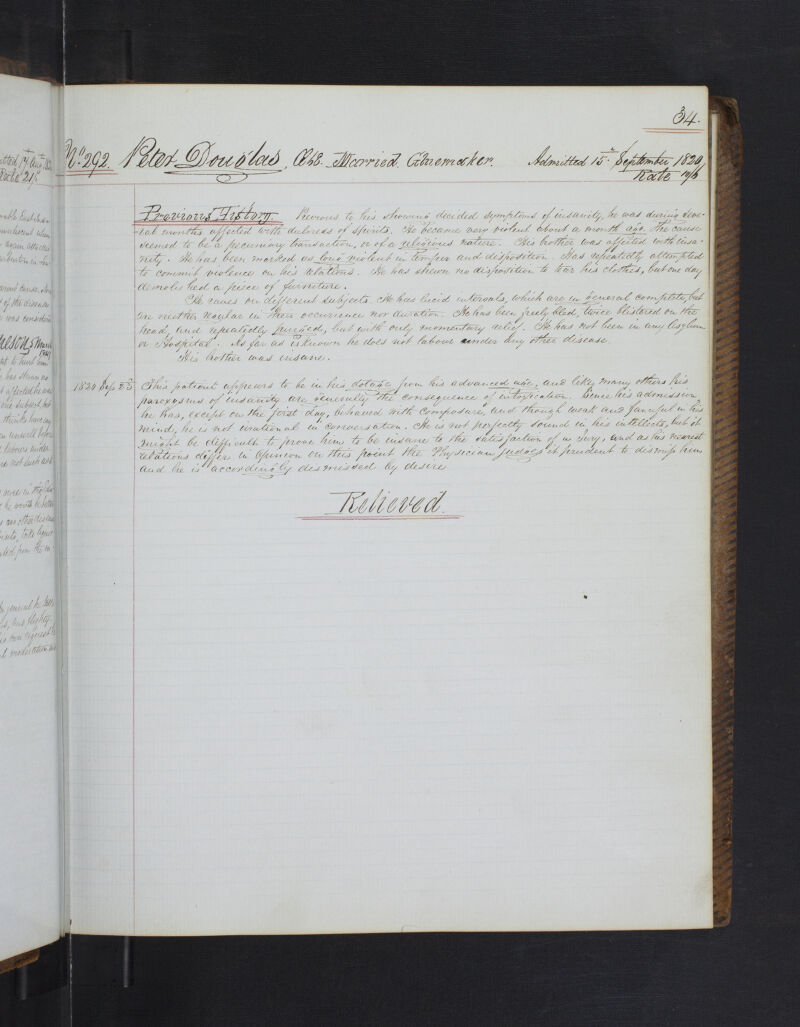 34.
No 292. Peter Douglas, Married. Admitted 15 September 1820
Rate
Previous History. Previous to his showing decided symptoms of insanity, he was during seve-
ral months affected with dulness of spirits. He became very violent about a month ago. The cause
seemed to be a pecuniary transaction, or of a religious nature. His brother was affected with insa-
nity. He has been marked as violent in temper and disposition. Has repeatedly attempted
to commit violence on his relations. He has shewn no disposition to tear his clothes, but one day
demolished a piece of furniture.
He raves on different subjects. He has lucid intervals, which are in general complete, but
are neither regular in their occurrence nor duration. He has been freely bled, twice blistered on the
head, and repeatedly purged, but with only momentary relief. He has not been in any Asylum
or Hospital. As far as is known he does not labour under any other disease.
His brother was insane.
1820 Sep 25 This patient appears to be in his dotage from his advanced age, and like many others his
paroxysms of insanity are generally the consequence of intoxication. Since his admission
he has, except on the first day, behaved with composure, and though weak and fanciful in his
mind, he is not irrational in conversation. He is not perfectly sound in his intellects, but it
might be difficult to prove him to be insane to the satisfaction of a Jury, and as his nearest
relations differ in opinion on this point the Physician judges it prudent to dismiss him
and he is accordingly dismissed by desire
Relieved.